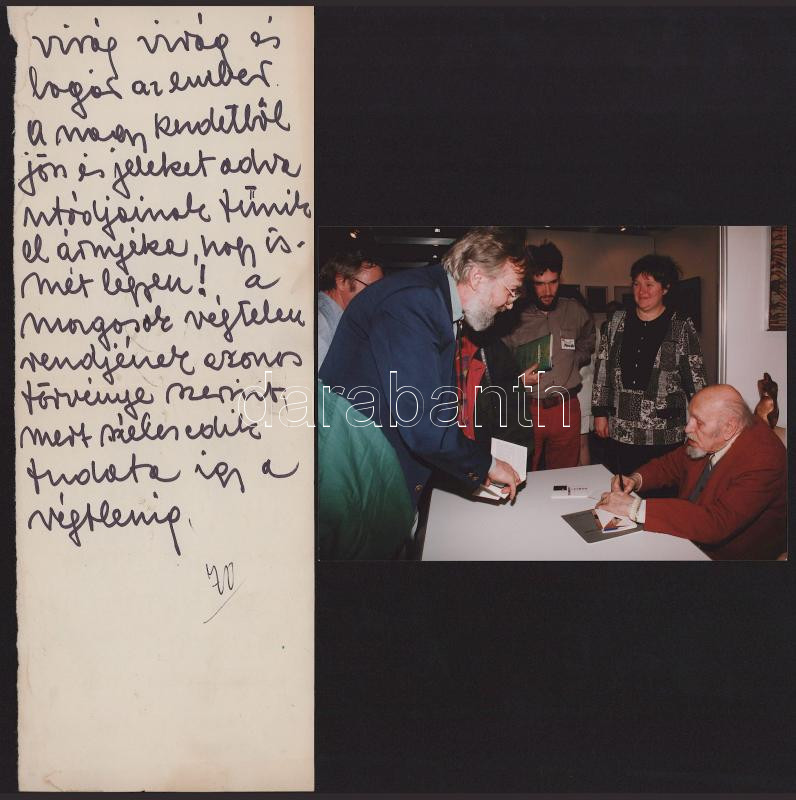 virág virág és
bogár az ember.
A nagy kezdetből
jön és jeleket adva
utódjainak tűnik
el árnyéka, hogy is-
mét legyen! a
mozgások végtelen
rendjének azonos
törvénye szerint,
mert szélesedik
tudata így a
végtelenig.
70
darabanth